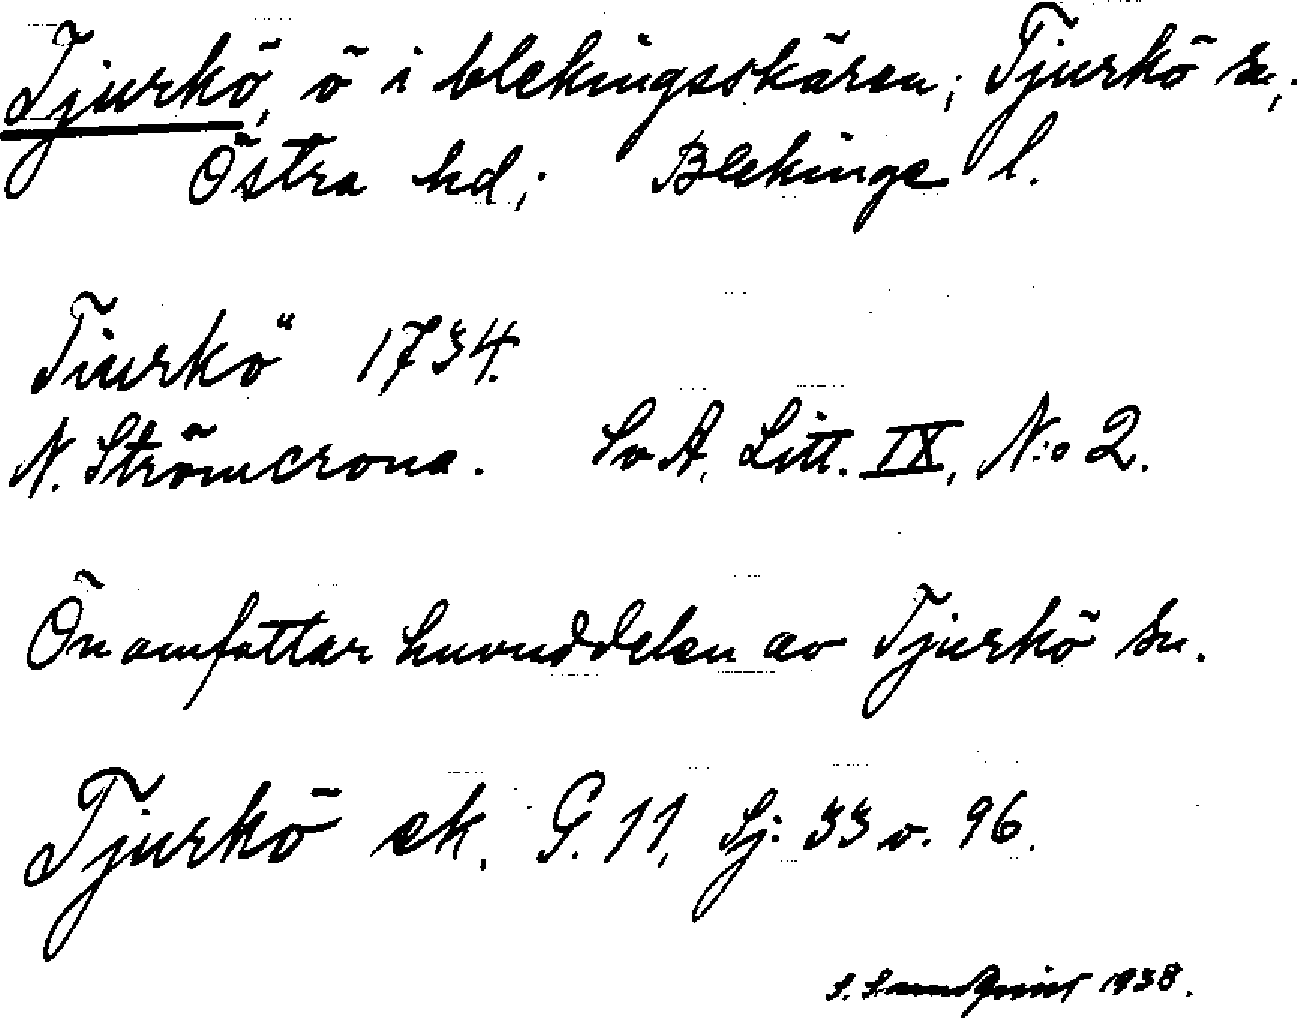 Tjurkö, ö i blekingsskären; Tjurkö sn,
Östra hd; Blekinge l.
Tiurkö 1734.
N. Strömcrona. Sv A, Litt. IX, N:o 2.
Ön omfattar huvuddelen av Tjurkö sn.
Tjurkö ek. G. 11, Sj: 33 o. 96.
S. Sundqvist 1938.